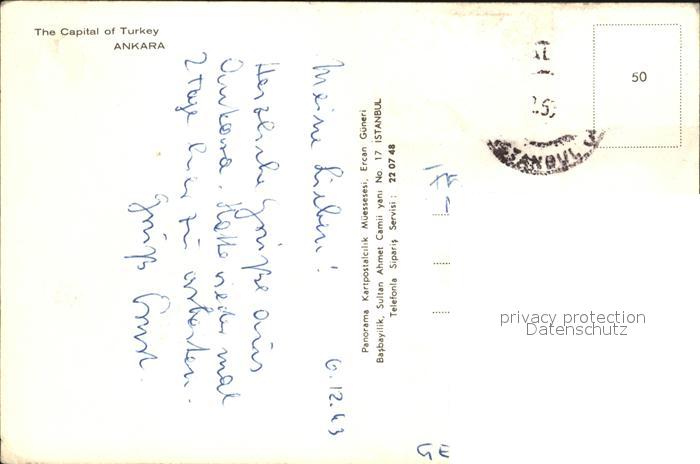 The Capital of Turkey
ANKARA
6.12.63
Meine Lieben!
Herzliche Grüße aus
Ankara. Hatte wieder mal
2 Tage hier zu arbeiten.
Gruß Ernst.
Panorama Kartpostalcilik Müessesesi, Ercan Güneri
Başbayilik, Sultan Ahmet Camii yanı No. 17 İSTANBUL
Telefonla Sipariş Servisi: 22 07 48
50
privacy protection
Datenschutz